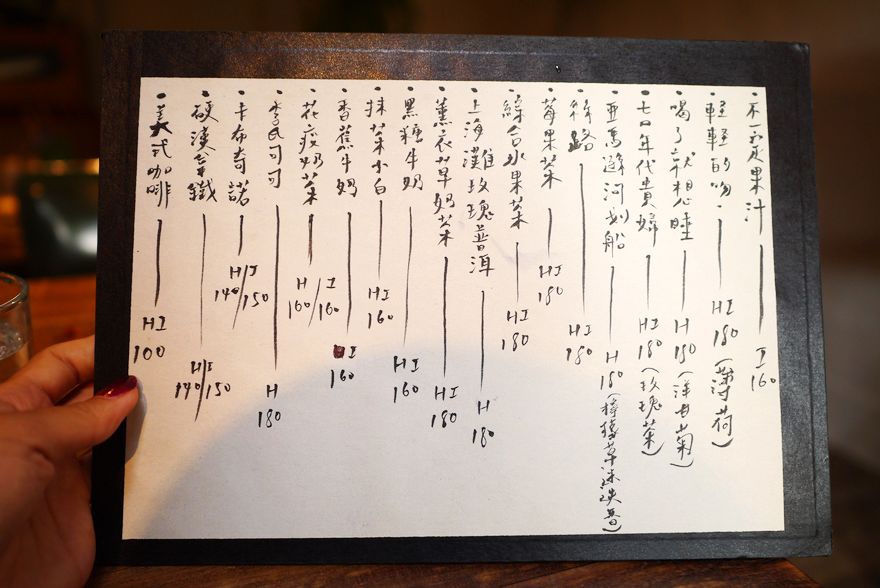 •不一定果汁 — I 160
•輕輕的吻、 — HI 180 (薄荷)
•喝了就想睡 — H 180 (洋甘菊)
•七〇年代貴婦 — HI 180 (玫瑰茶)
•亞馬遜河划船 — H 180 (檸檬草迷迭香)
•絲路 — HI 180
•莓果茶 — HI 180
•綜合水果茶 — HI 180
•上海灘玫瑰普洱 — H 180
•薰衣草奶茶 — HI 180
•黑糖牛奶 — HI 160
•抹茶小白 — HI 160
•香蕉牛奶 — I 160
•花痴奶茶 — H 160/I 160
•李氏可可 — H 180
•卡布奇諾 — H 140/I 150
•硬漢拿鐵 — H 140/I 150
•美式咖啡 — HI 100